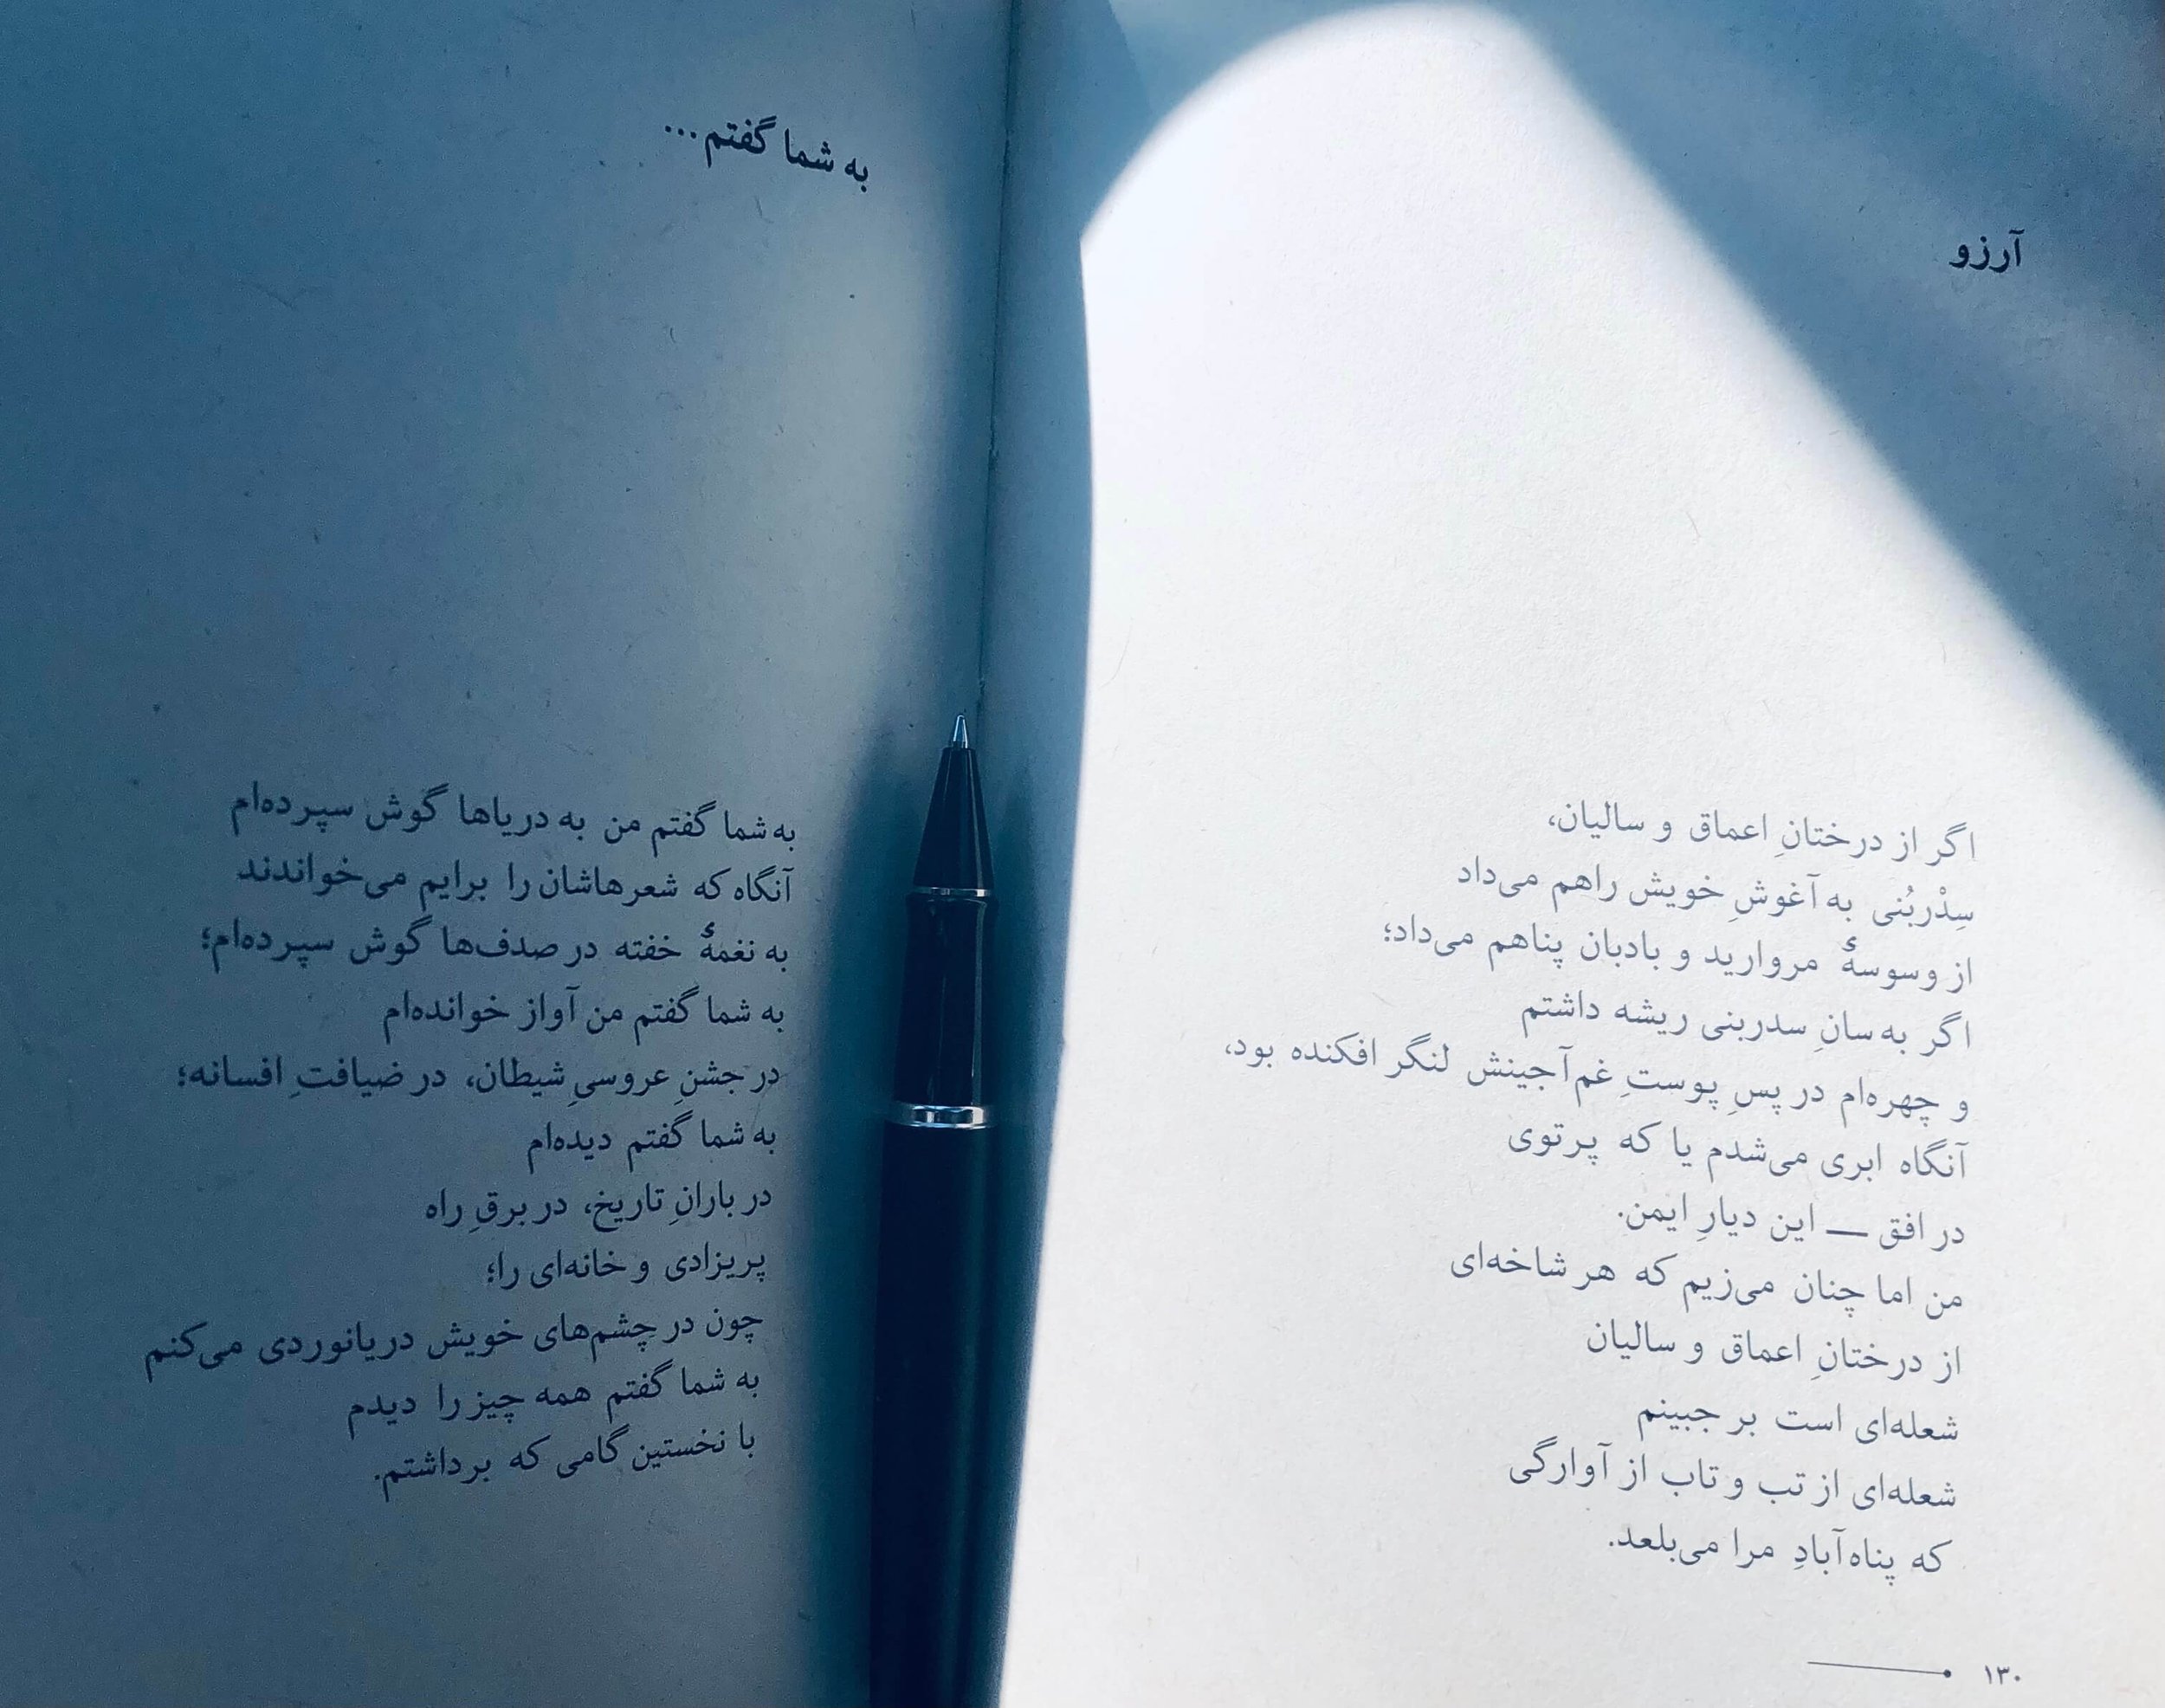 آرزو
اگر از درختانِ اعماق و سالیان،
سِدْربُنی به آغوشِ خویش راهم می‌داد
از وسوسهٔ مروارید و بادبان پناهم می‌داد؛
اگر به سانِ سدربنی ریشه داشتم
و چهره‌ام در پسِ پوستِ غم‌آجینش لنگر افکنده بود،
آنگاه ابری می‌شدم یا که پرتوی
در افق — این دیارِ ایمن.
من اما چنان می‌زیم که هر شاخه‌ای
از درختانِ اعماق و سالیان
شعله‌ای است بر جبینم
شعله‌ای از تب و تاب از آوارگی
که پناه‌آبادِ مرا می‌بلعد.
۱۳۰
به شما گفتم...
به شما گفتم من به دریاها گوش سپرده‌ام
آنگاه که شعرهاشان را برایم می‌خواندند
به نغمهٔ خفته در صدف‌ها گوش سپرده‌ام؛
به شما گفتم من آواز خوانده‌ام
در جشنِ عروسیِ شیطان، در ضیافتِ افسانه؛
به شما گفتم دیده‌ام
در بارانِ تاریخ، در برقِ راه
پریزادی و خانه‌ای را؛
چون در چشم‌های خویش دریانوردی می‌کنم
به شما گفتم همه چیز را دیدم
با نخستین گامی که برداشتم.